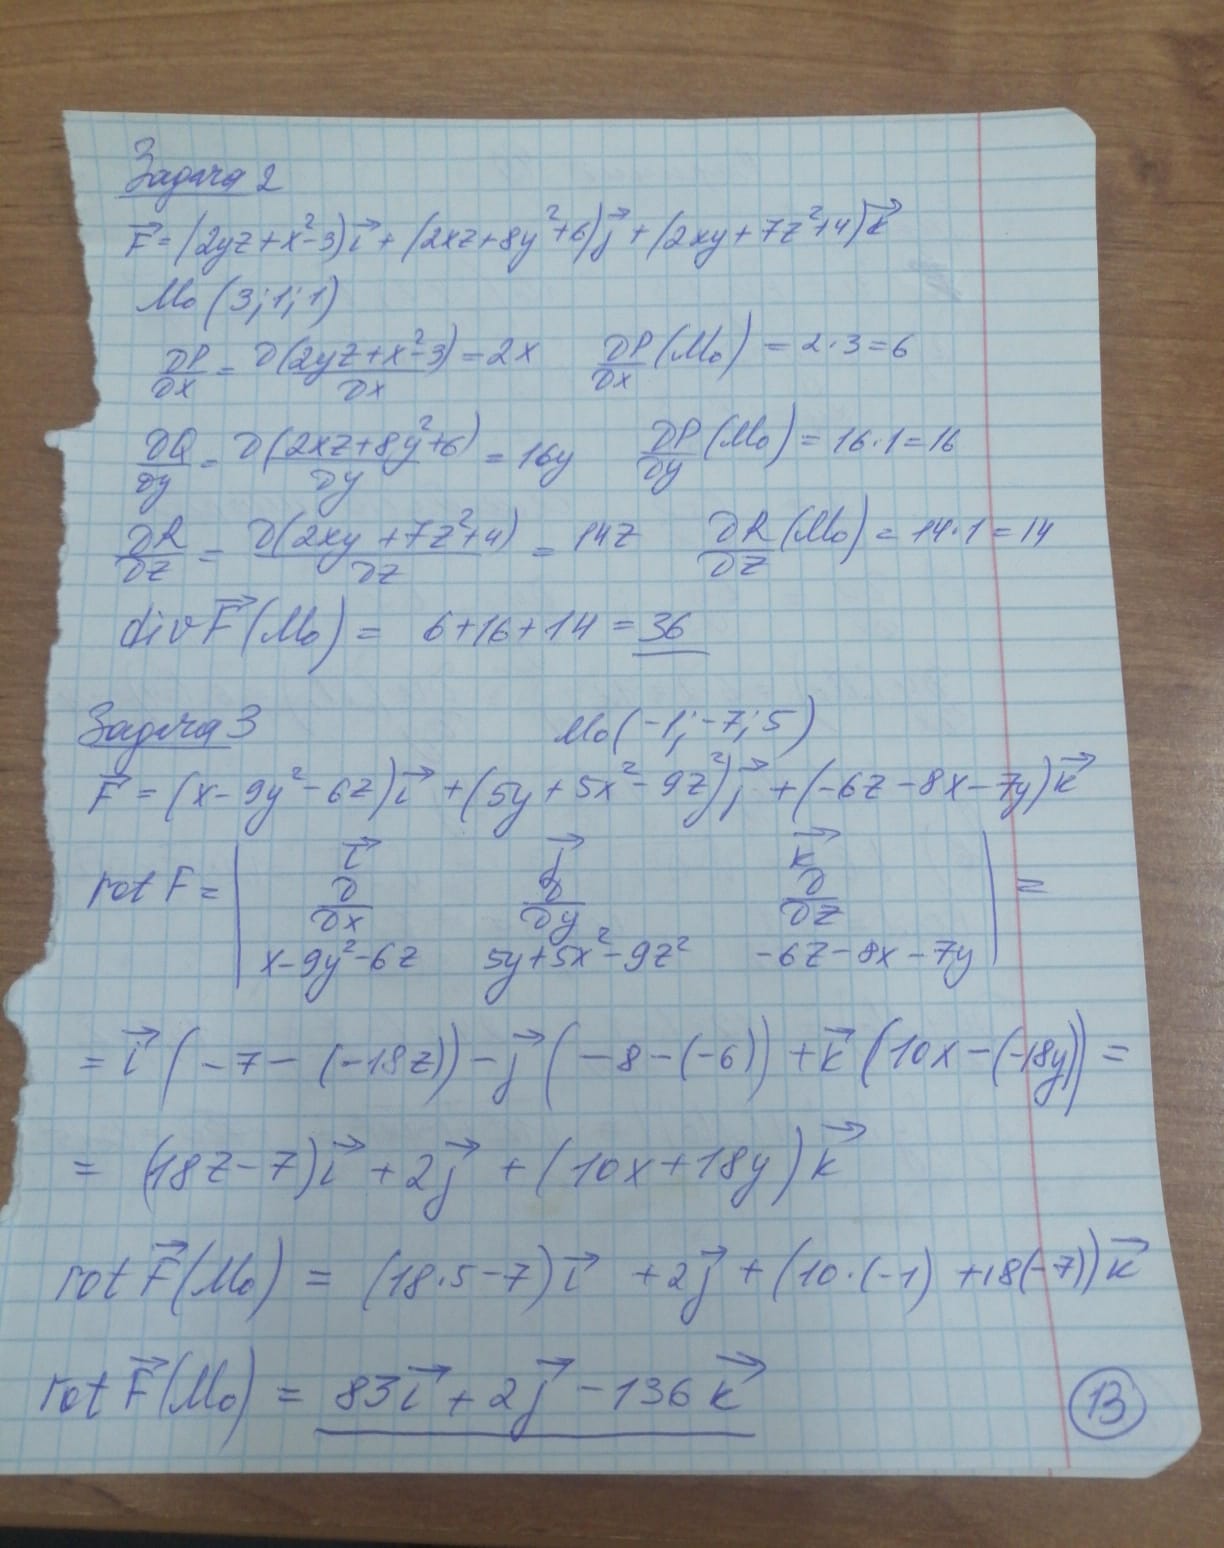 Задача 2
F⃗ = (2yz + x² - 3)i⃗ + (2xz + 8y² + 6)j⃗ + (2xy + 7z² + 4)k⃗
M₀ (3; 1; 1)
∂P/∂x = ∂(2yz + x² - 3)/∂x = 2x ∂P/∂x (M₀) = 2·3 = 6
∂Q/∂y = ∂(2xz + 8y² + 6)/∂y = 16y ∂P/∂y (M₀) = 16·1 = 16
∂R/∂z = ∂(2xy + 7z² + 4)/∂z = 14z ∂R/∂z (M₀) = 14·1 = 14
div F⃗ (M₀) = 6 + 16 + 14 = 36
Задача 3 M₀ (-1; -7; 5)
F⃗ = (x - 9y² - 6z)i⃗ + (5y + 5x² - 9z²)j⃗ + (-6z - 8x - 7y)k⃗
rot F = | i⃗ j⃗ k⃗ | =
∂/∂x ∂/∂y ∂/∂z
x - 9y² - 6z 5y + 5x² - 9z² -6z - 8x - 7y
= i⃗ (-7 - (-18z)) - j⃗ (-8 - (-6)) + k⃗ (10x - (-18y)) =
= (18z - 7)i⃗ + 2j⃗ + (10x + 18y)k⃗
rot F⃗ (M₀) = (18·5 - 7)i⃗ + 2j⃗ + (10·(-1) + 18(-7))k⃗
rot F⃗ (M₀) = 83i⃗ + 2j⃗ - 136k⃗
13